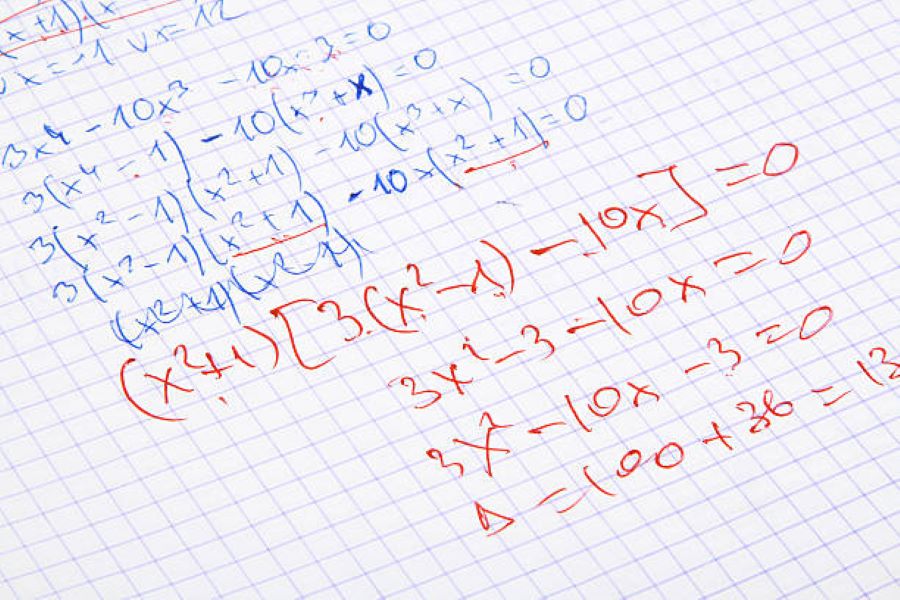 x+1)(x
x=-1 ∨ x=12
3x⁴-10x³-10x-3=0
3(x⁴-1)-10(x³+x)=0
3(x²-1)(x²+1)-10(x³+x)=0
3(x²-1)(x²+1)-10x(x²+1)=0
(x²+1)(x²-1)
(x²+1)[3(x²-1)-10x]=0
3x²-3-10x=0
3x²-10x-3=0
Δ=100+36=13